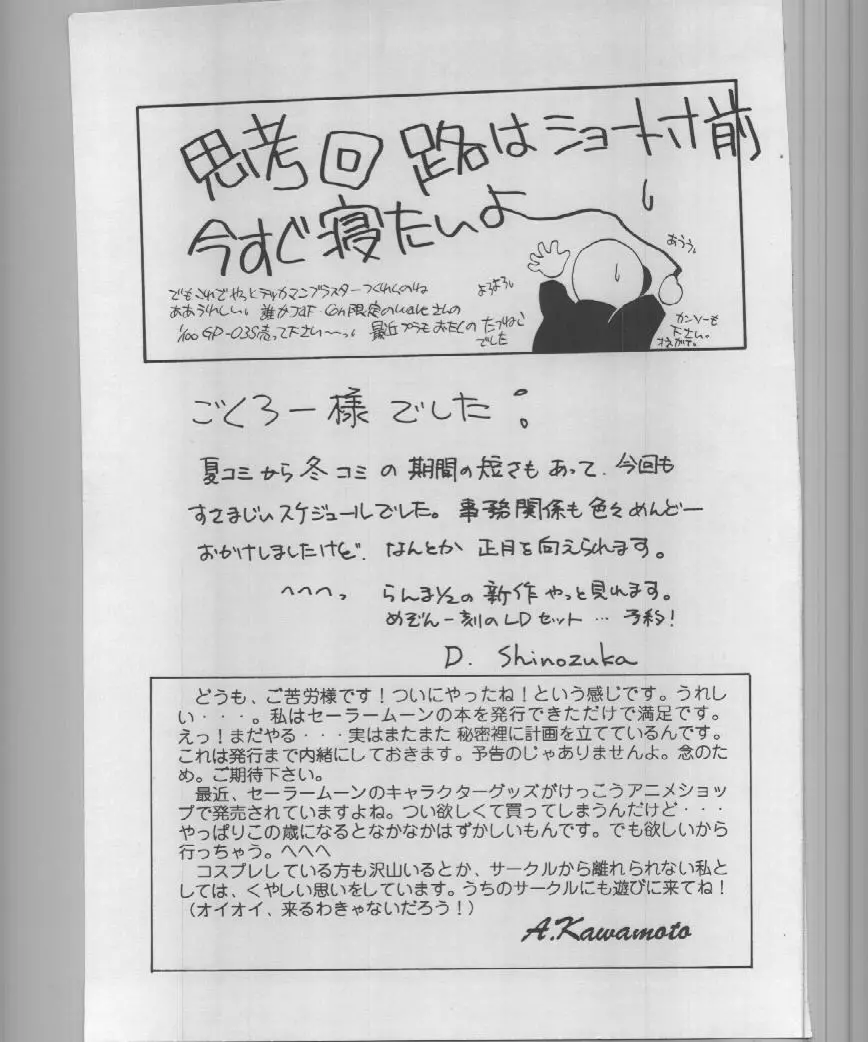 思考回路はショート寸前
今すぐ寝たいよ
おうう。
よろよろ。
でもこれでやっとテッカマンブラスターつくれるのね
ああうれしい。誰かJAF・CON限定のwaveさんの
1/100 GP-03S売って下さい〜〜。最近プラモおたくの
でした
カンソーも
下さい。
ごくろー様でした。
夏コミから冬コミの期間の短さもあって、今回も
すさまじいスケジュールでした。事務関係も色々めんどー
おかけしましたけど、なんとか正月を向えられます。
へへへっ らんま1/2の新作やっと見れます。
めぞん一刻のLDセット…予約!
D. Shinozuka
どうも、ご苦労様です！ついにやったね！という感じです。うれし
い・・・。私はセーラームーンの本を発行できただけで満足です。
えっ！まだやる・・・実はまたまた 秘密裡に計画を立てているんです。
これは発行まで内緒にしておきます。予告のじゃありませんよ。念のた
め。ご期待下さい。
最近、セーラームーンのキャラクターグッズがけっこうアニメショッ
プで発売されていますよね。つい欲しくて買ってしまうんだけど・・・
やっぱりこの歳になるとなかなかはずかしいもんです。でも欲しいから
行っちゃう。へへへ
コスプレしている方も沢山いるとか、サークルから離れられない私と
しては、くやしい思いをしています。うちのサークルにも遊びに来てね！
（オイオイ、来るわきゃないだろう！）
A.Kawamoto